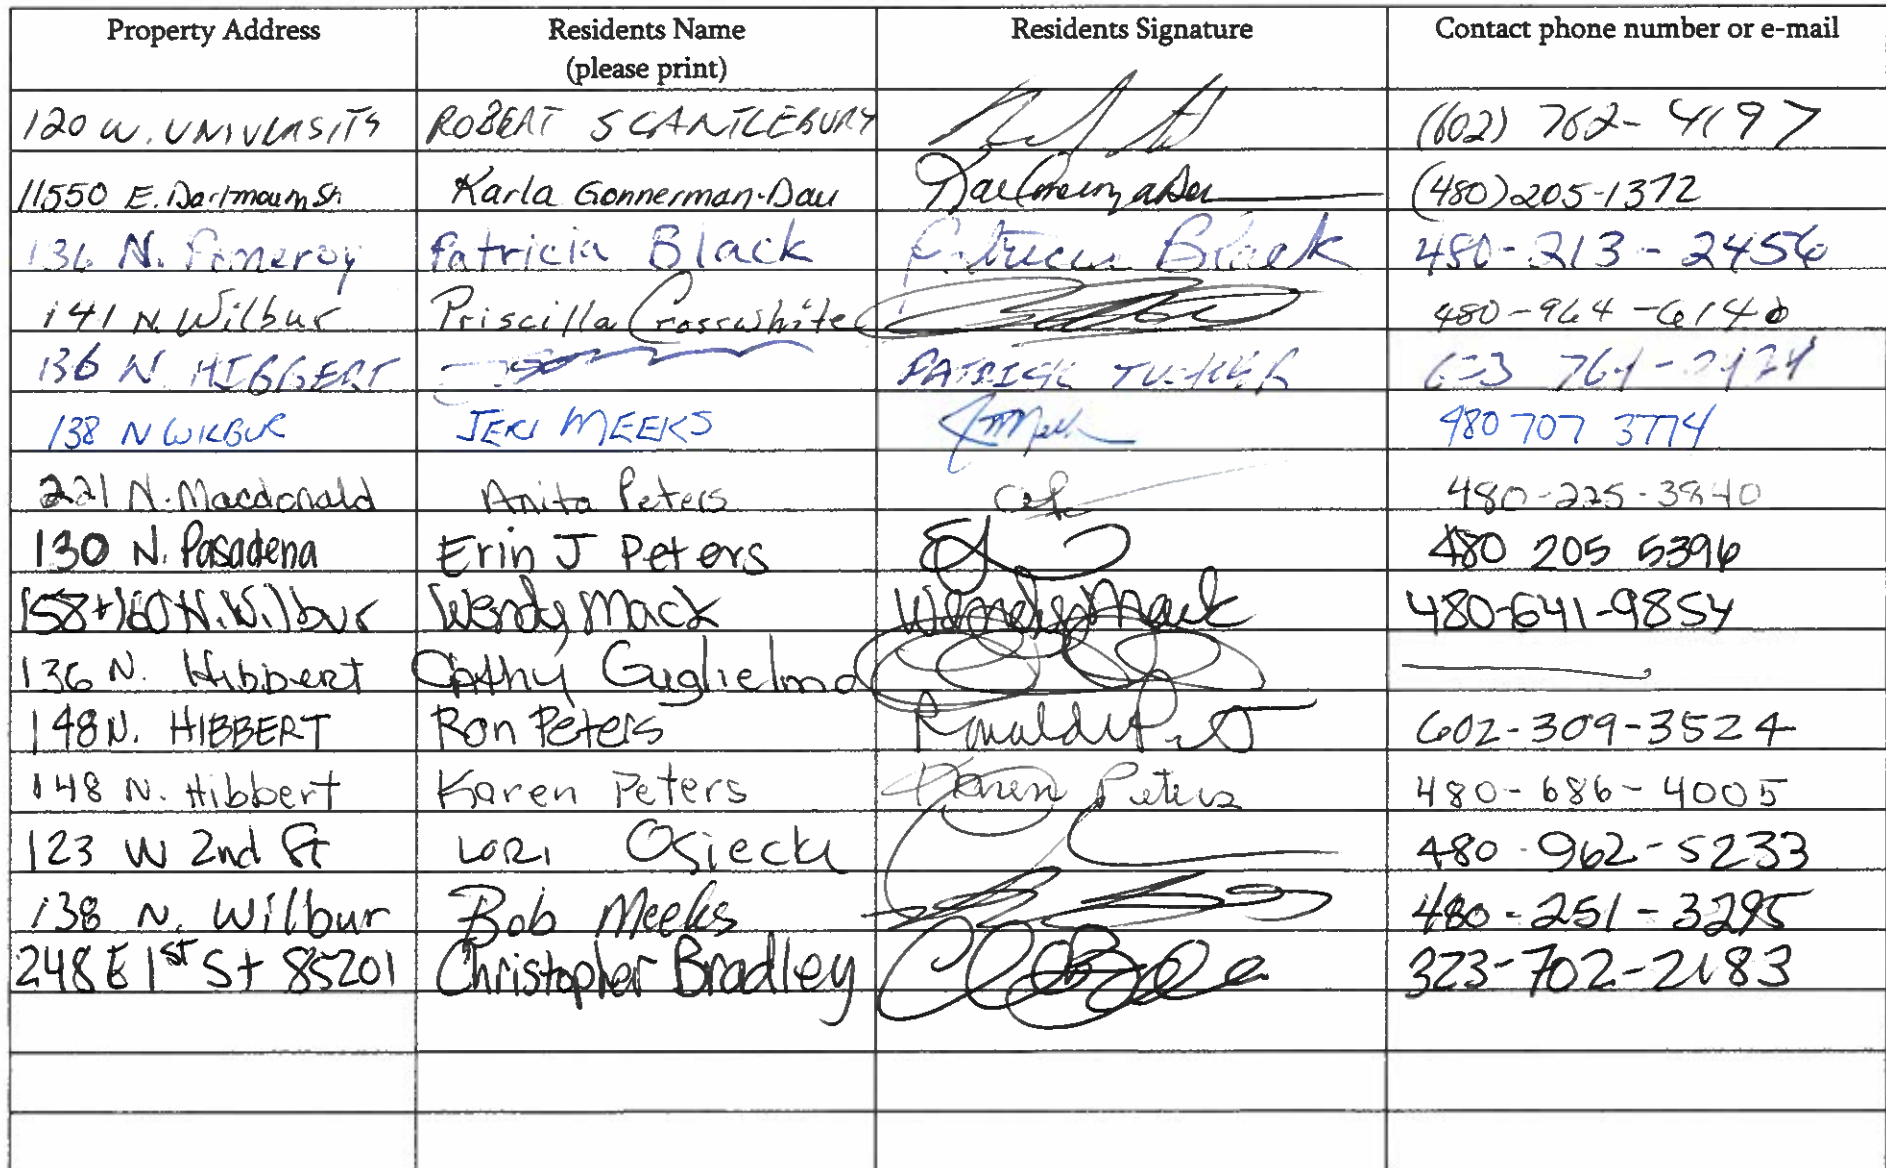 Property Address Residents Name Residents Signature Contact phone number or e-mail
(please print)
120 W. UNIVERSITY ROBERT SCANTLEBURY (602) 762-4197
11550 E. Dartmouth St. Karla Gonnerman-Dau (480) 205-1372
136 N. Pomeroy Patricia Black Patricia Black 480-213-2456
141 N. Wilbur Priscilla Crosswhite 480-964-6140
136 N HIBBERT PATRICK TUCKER
138 N WILBUR JERI MEEKS 480 707 3774
221 N. Macdonald Anita Peters 480-225-3840
130 N. Pasadena Erin J Peters 480 205 5396
158+160 N. Wilbur Wendy Mack Wendy Mack 480-641-9854
136 N. Hibbert Cathy Guglielmo
148 N. HIBBERT Ron Peters 602-309-3524
148 N. Hibbert Karen Peters Karen Peters 480-686-4005
123 W 2nd St LORI Osiecki 480-962-5233
138 N. Wilbur Bob Meeks 480-251-3295
248 E 1st St 85201 Christopher Bradley 323-702-2183